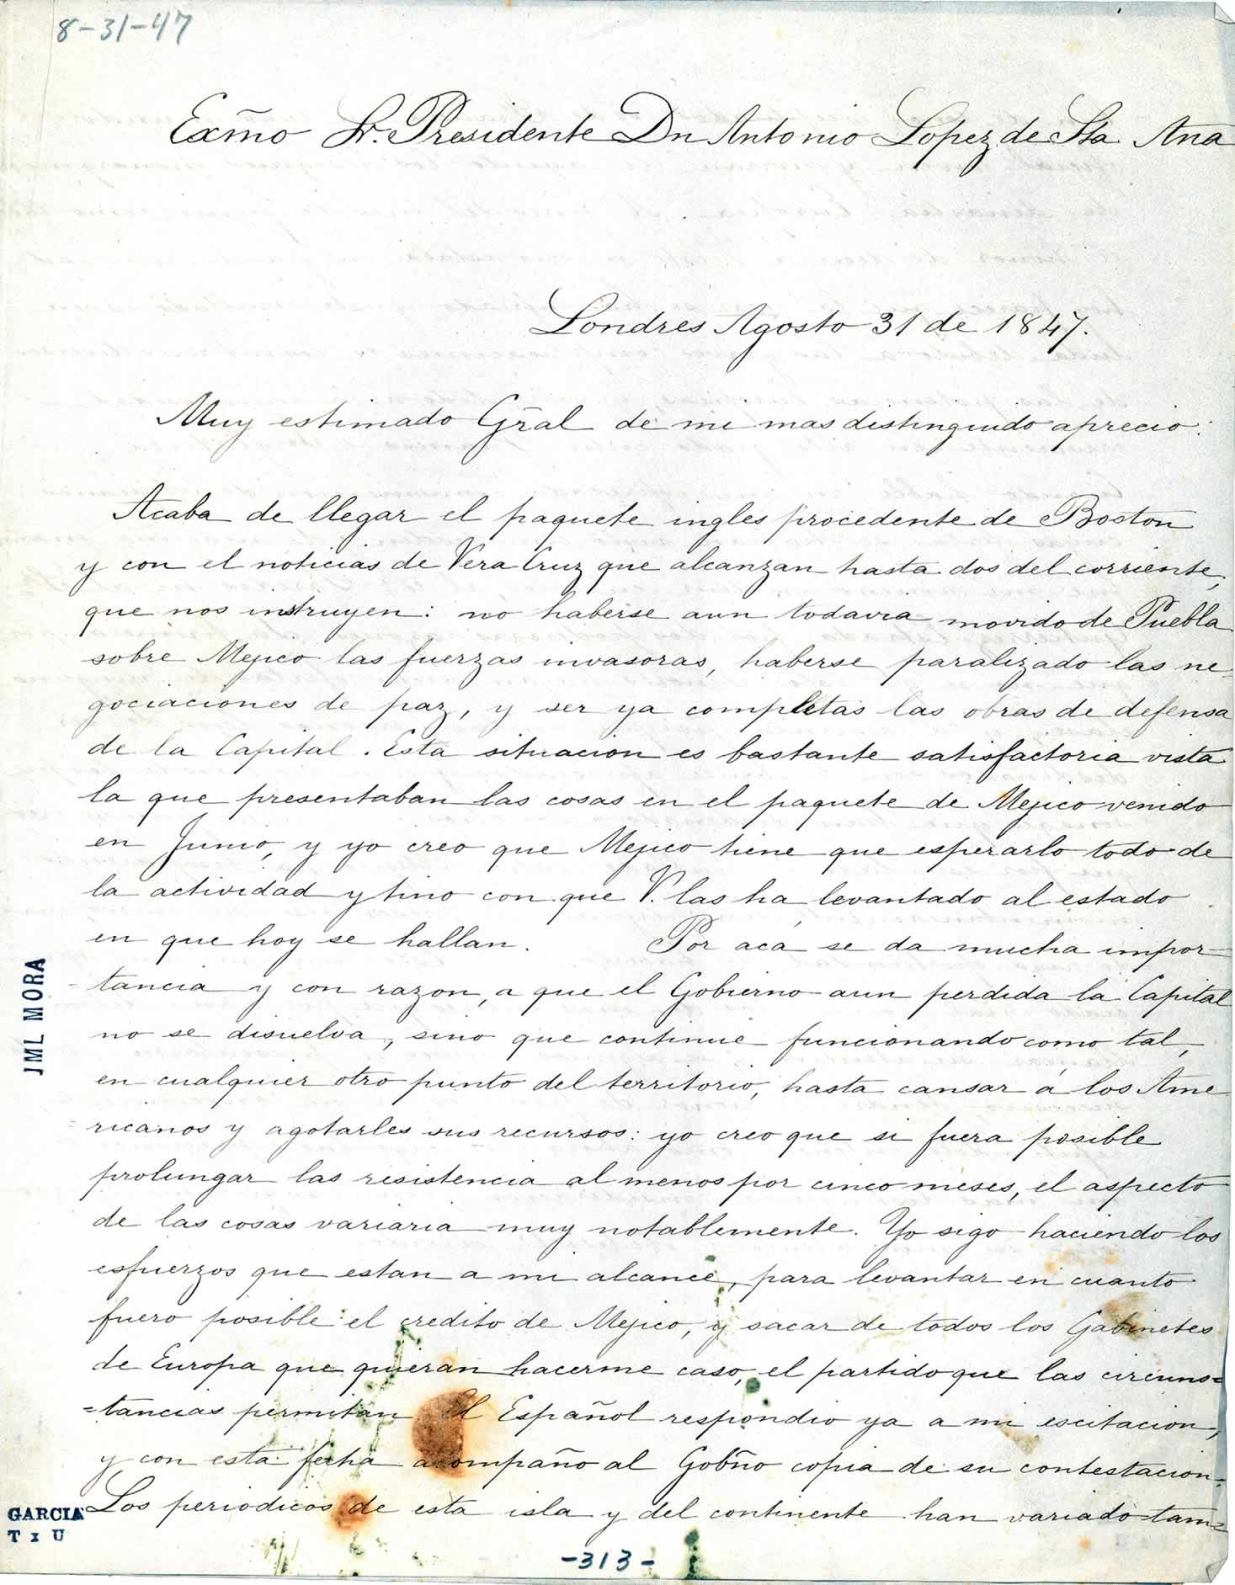 8-31-47
Exm̃o Sr. Presidente Dn Antonio Lopez de Sta Ana
Londres Agosto 31 de 1847.
Muy estimado Gr̃al de mi mas distinguido aprecio:
Acaba de llegar el paquete ingles procedente de Boston
y con el noticias de Vera Cruz que alcanzan hasta dos del corriente,
que nos instruyen: no haberse aun todavia movido de Puebla
sobre Mejico las fuerzas invasoras, haberse paralizado las ne
gociaciones de paz, y ser ya completas las obras de defensa
de la Capital. Esta situacion es bastante satisfactoria vista
la que presentaban las cosas en el paquete de Mejico venido
en Junio, y yo creo que Mejico tiene que esperarlo todo de
la actividad y tino con que V. las ha levantado al estado
en que hoy se hallan. Por acá se da mucha impor-
tancia y con razon, a que el Gobierno aun perdida la Capital
no se disuelva, sino que continue funcionando como tal,
en cualquier otro punto del territorio, hasta cansar á los Ame
ricanos y agotarles sus recursos: yo creo que si fuera posible
prolungar las resistencia al menos por cinco meses, el aspecto
de las cosas variaria muy notablemente. Yo sigo haciendo los
esfuerzos que estan a mi alcance, para levantar en cuanto
fuero posible el credito de Mejico, y sacar de todos los Gabinetes
de Europa que quieran hacerme caso, el partido que las circuns=
=tancias permitan El Español respondio ya a mi escitacion,
y con esta fecha acompaño al Gobño copia de su contestacion.
Los periodicos de esta isla y del continente han variado tam=
JML MORA
GARCIA
T x U
-313-